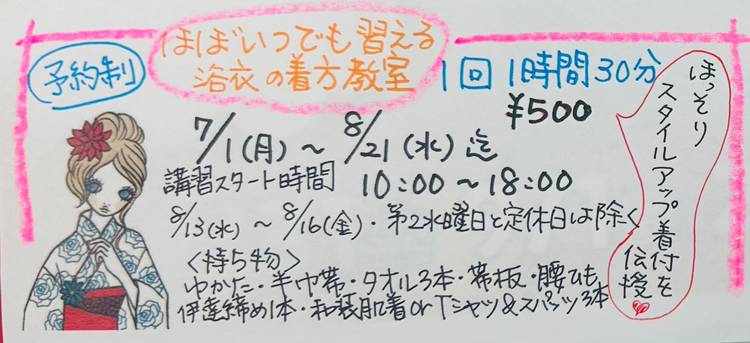 予約制
ほぼいつでも習える
浴衣の着方教室
1回 1時間30分
¥500
7/1(月)~8/21(水)迄
講習スタート時間 10:00~18:00
8/13(水)~8/16(金)・第2水曜日と定休日は除く
<持ち物>
ゆかた・半巾帯・タオル3本・帯板・腰ひも
伊達締め1本・和装肌着orTシャツ&スパッツ3本
ほっそり
スタイルアップ着付を
伝授